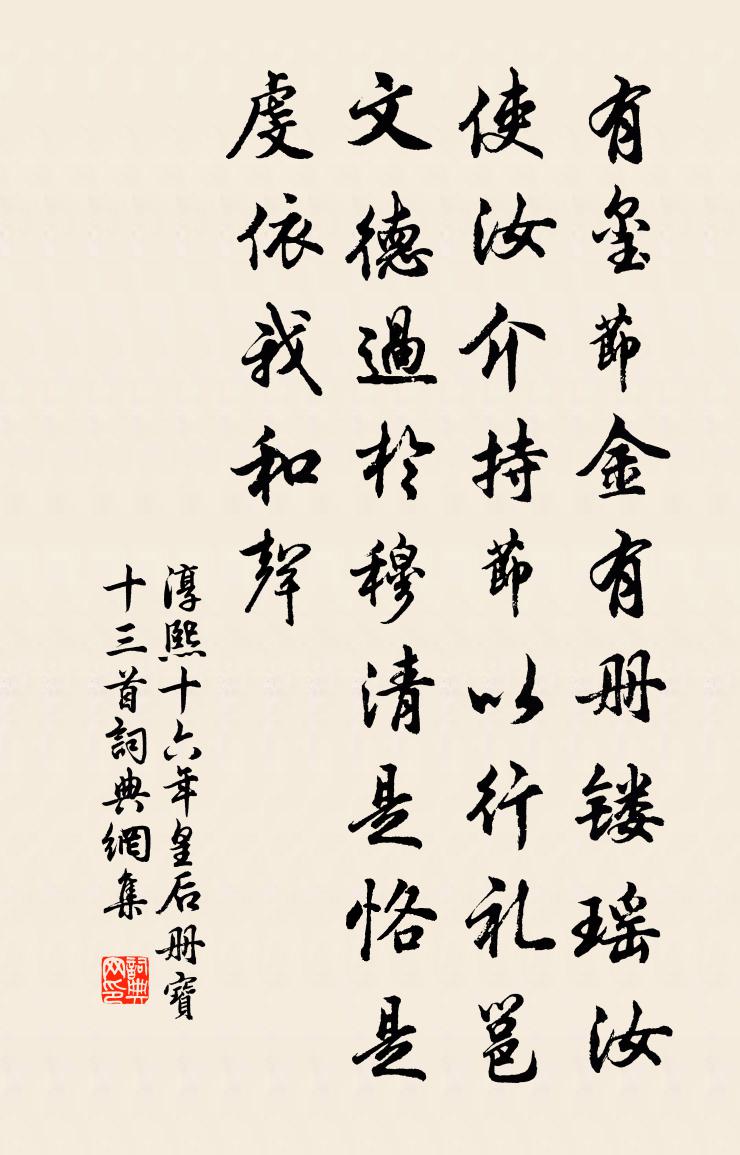 有玺節金有册镂瑶汝
使汝介持節以行礼邕
文德過於穆清是恪是
虔依我和聲
淳熙十六年皇后册寶
十三首詞典網集
詞典网印